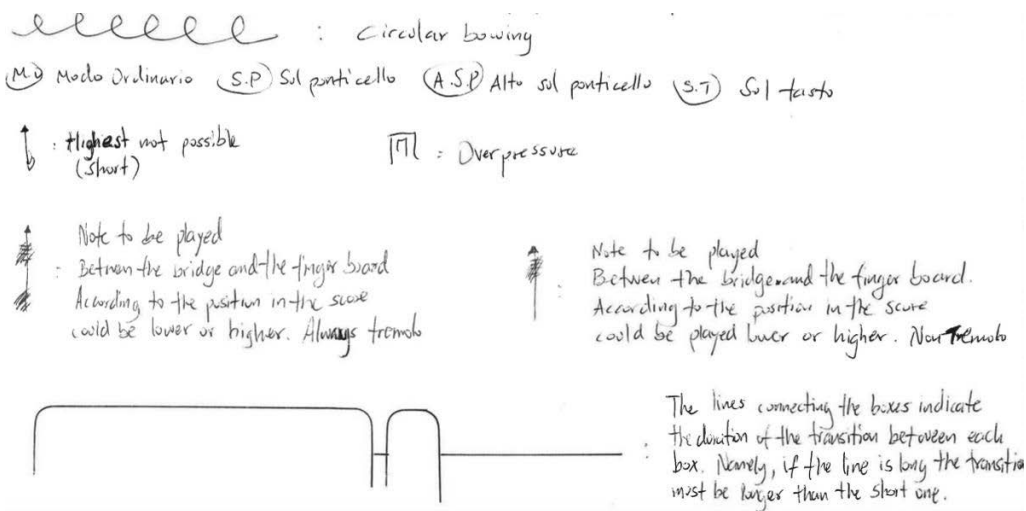 : Circular bowing
M.O Modo Ordinario S.P Sul ponticello A.S.P Alto sul ponticello S.T Sul tasto
: Highest not possible
(short)
: Overpressure
Note to be played
: Between the bridge and the finger board
According to the position in the score
could be lower or higher. Always tremolo
Note to be played
Between the bridge and the finger board.
: According to the position in the score
could be played lower or higher. Non Tremolo
The lines connecting the boxes indicate
: the duration of the transition between each
box. Namely, if the line is long the transition
must be longer than the short one.